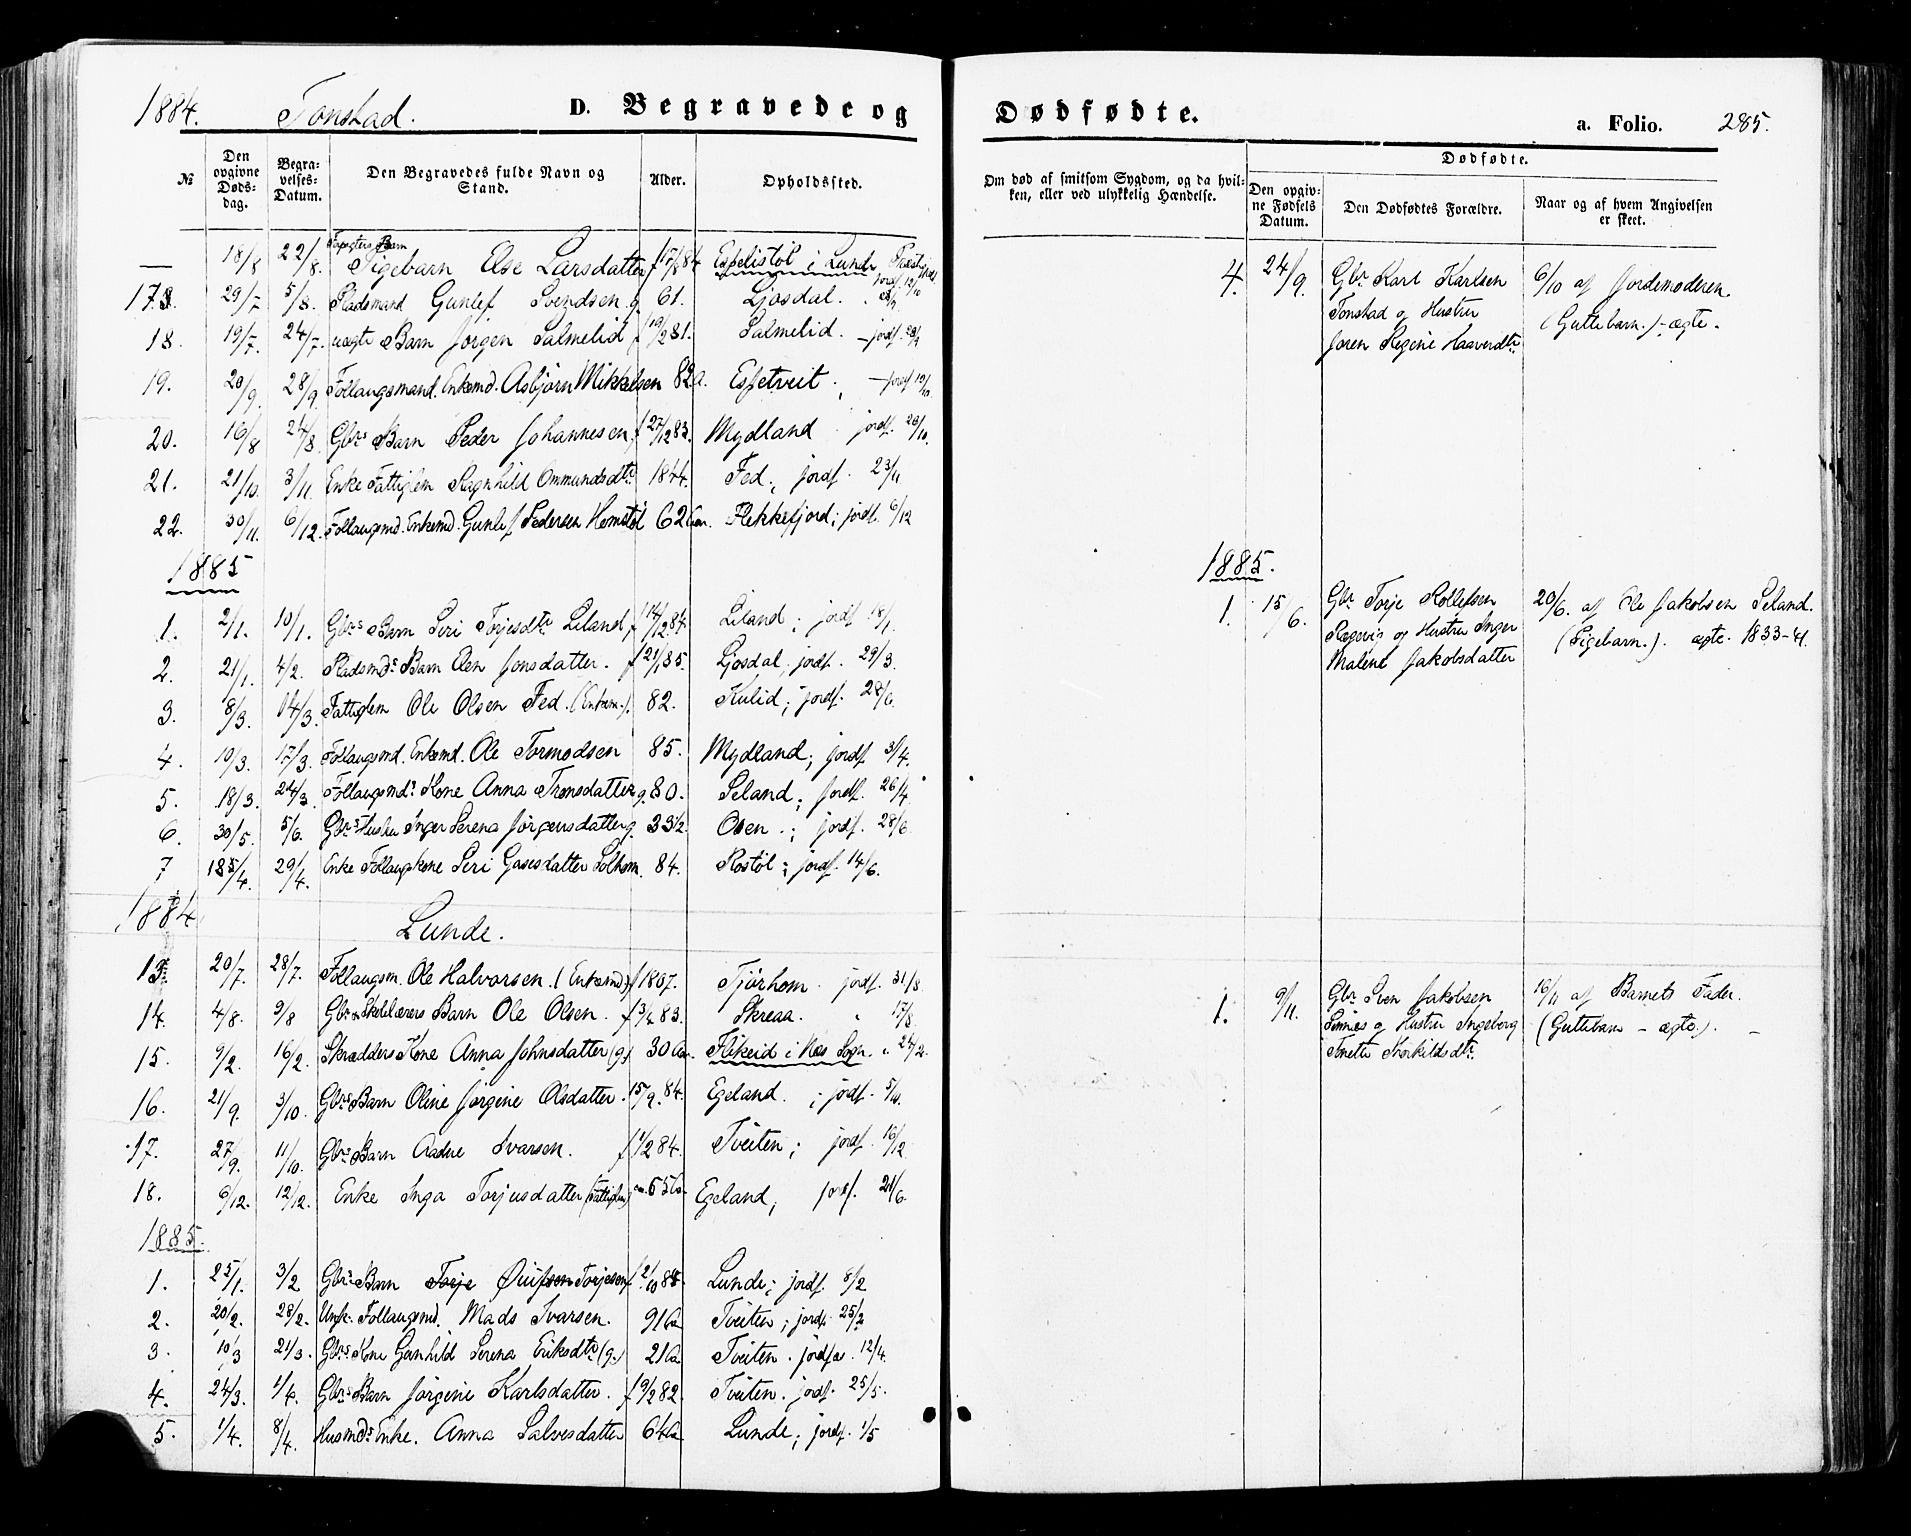 1884. Tonstad. D. Begravede og Dødfødte. a. Folio. 285.
№ Den opgivne Dødsdag. Begravelses-Datum. Den Begravedes fulde Navn og Stand. Alder. Opholdssted.
Om død af smitsom Sygdom, og da hvilken, eller ved ulykkelig Hændelse. Dødfødte. Den opgivne Fødsels Datum. Den Dødfødtes Forældre. Naar og af hvem Angivelsen er skeet.
— 18/8 22/8. Pigebarn Else Larsdatter f 17/8 84 Espelistøl i Lunde
17. 29/7 5/8. Pladsmand Gunlef Svendsen g. 61. Ljosdal.
18. 19/7. 24/7. uægte Barn Jørgen Salmelid f 19/2 81. Salmelid. — jordf.
19. 20/9. 28/9. Follaugsmand. Enkemd. Asbjørn Mikkelsen 82 a. Espetveit. — jordf 19/10.
20. 16/8 24/8. Gbrs Barn Peder Johannesen, f 27/12 83. Mydland jordf. 26/10.
21. 21/10. 3/11. Enke Fattiglem Ragnhild Ommundsdtr 1844. Fed., jordf. 23/11
22. 30/11. 6/12. Follaugsmd. Enkemd. Gunlef Pedersen Homstøl 62 Aar. Flekkefjord; jordf. 6/12
1885
1. 2/1. 10/1. Gbrs Barn Siri Torjesdtr Liland f 14/12 84. Liland; jordf 18/1.
2. 21/1. 4/2. Pladsmds Barn Elen Jonsdatter. f 21/1 85. Ljosdal, jordf. 29/3.
3. 8/3. 14/3. Fattiglem Ole Olsen Fed. (Enkem.). 82. Kulid; jordf. 28/6.
4. 10/3. 17/3. Follaugsmd. Enkemd. Ole Tormodsen 85. Mydland; jordf. 3/4.
5. 18/3. 24/3. Follaugsmds Kone Anna Tronsdatter g. 80. Seland; jordf. 26/4
6. 30/5. 5/6. Gbrs Hustru Inger Serena Jørgensdatter g. 33 1/2. Osen.; jordf. 28/6.
7 /4. 29/4. Enke Follaugskone Siri Gasesdatter Solhom. 84. Rostøl; jordf. 14/6.
4. 24/9. Gbr Karl Karlsen 6/10 af Jordemoderen.
Tonstad og Hustru (Guttebarn.) - ægte.
Joren Regine Haaverdtr.
1885.
1. 15/6. Gbr Torje Rollefsen 20/6. af Ole Jakobsen Seland.
og Hustru Inger (Pigebarn.). ægte. 1833-41
Malene Jakobsdatter
1884. Lunde.
13. 20/7. 28/7. Follaugsm. Ole Halvorsen. (Enkemd) f 1807. Tjørhom. jordf. 31/8
14. 4/8. 9/8 Gbr & Skolelærers Barn Ole Olsen. f 3/4 83. Skreaa. " 17/8
15. 9/2. 16/2. Skrædders Kone Anna Johnsdatter (g.) 30 Aar. Flikeid i Næs Sogn. " 24/2.
16. 21/9. 3/10. Gbrs Barn Oline Jørgine Olsdatter. 15/9. 84. Egeland. ; jordf. 5/10.
17. 27/9. 11/10. Gbrs Barn Aadne Ivarsen. f 1/2 84. Tveiten; jordf. 16/12
18. 6/12. 12/12. Enke Inga Torjusdatter (Fattiglem) 65 Aar Egeland; jordf. 21/6.
1885.
1. 25/1. 3/2 Gbrs Barn Torje Torjesen f 2/10 Lunde; jordf. 8/2
2. 20/2. 28/2. Ungk. Follaugsmd. Mads Ivarsen. 91 Aar Tveiten; jordf. 25/2
3. 10/3 21/3. Gbrs Kone Gunhild Serena Eriksdtr (g.) 21 Aar Tveiten. jordfæ. 12/4.
4. 24/3. 1/4. Gbrs Barn Jørgine Karlsdatter. f 19/2 82. Tveiten. jordf. 25/5.
5. 1/4. 8/4. Husmds Enke. Anna Salvesdatter 64 Aar Lunde; jordf. 1/5
1. 9/11. Gbr Sven Jakobsen 16/11 af Barnets Fader.
Sinnes og Hustru Ingeborg (Guttebarn - ægte). —
Tonette Thorkildsdtr.